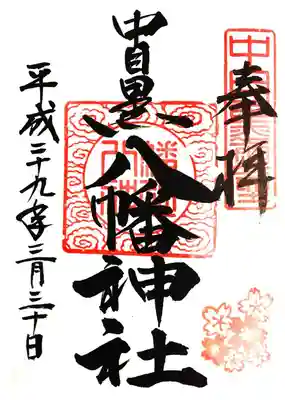 奉拝
中目黒八幡神社
平成二十九年三月三十日